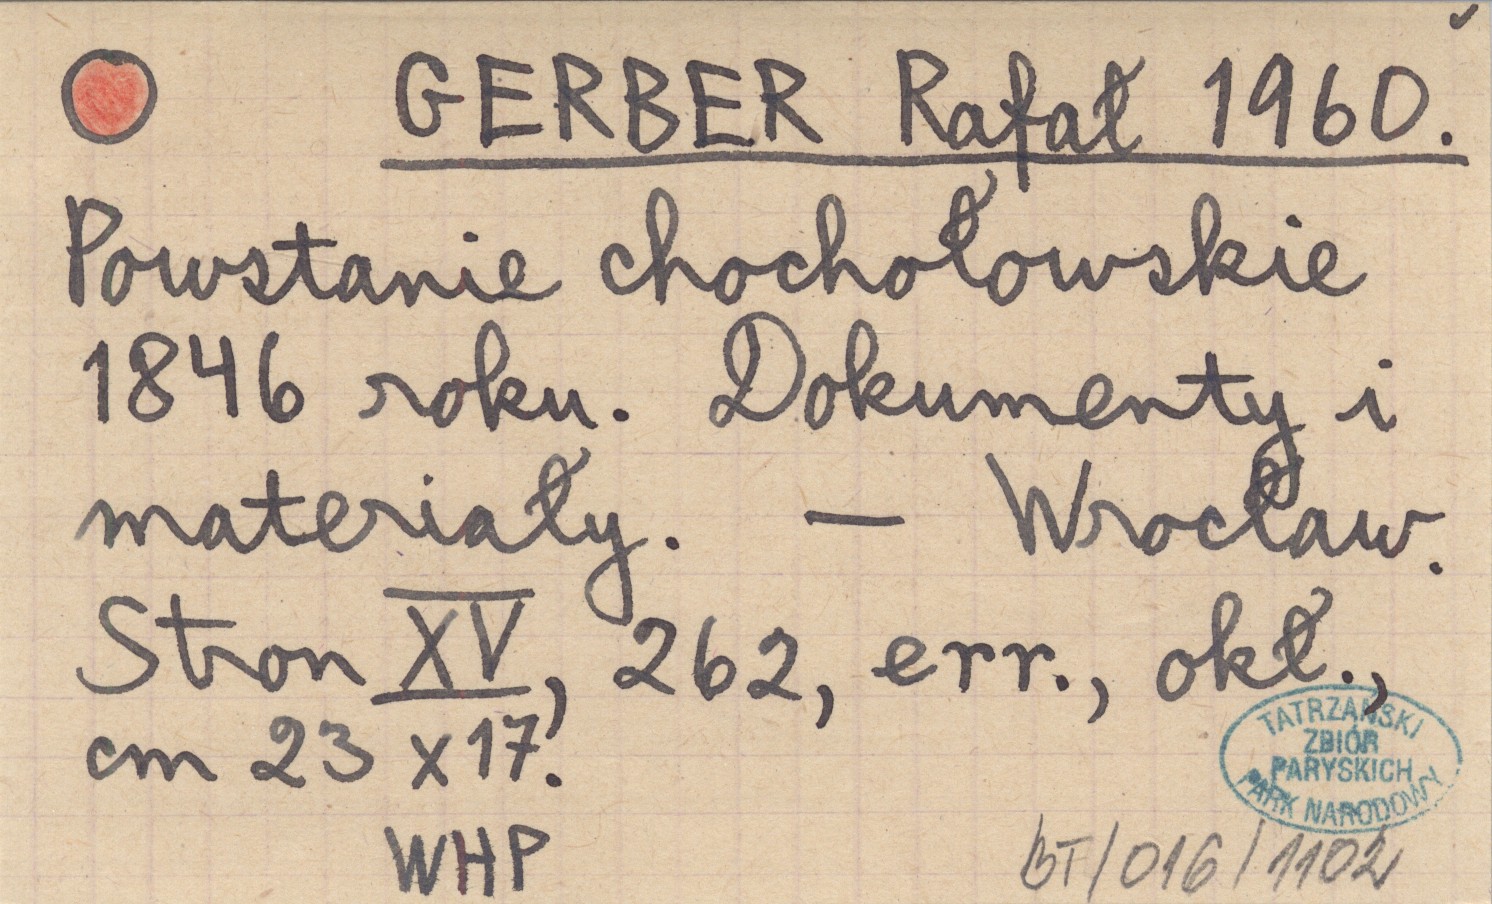 GERBER Rafał 1960.
Powstanie chochołowskie
1846 roku. Dokumenty i
materiały. — Wrocław.
Stron XV, 262, err., okł.,
cm 23 x 17.
TATRZAŃSKI
ZBIÓR
PARYSKICH
PARK NARODOWY
WHP
BT/016/1102